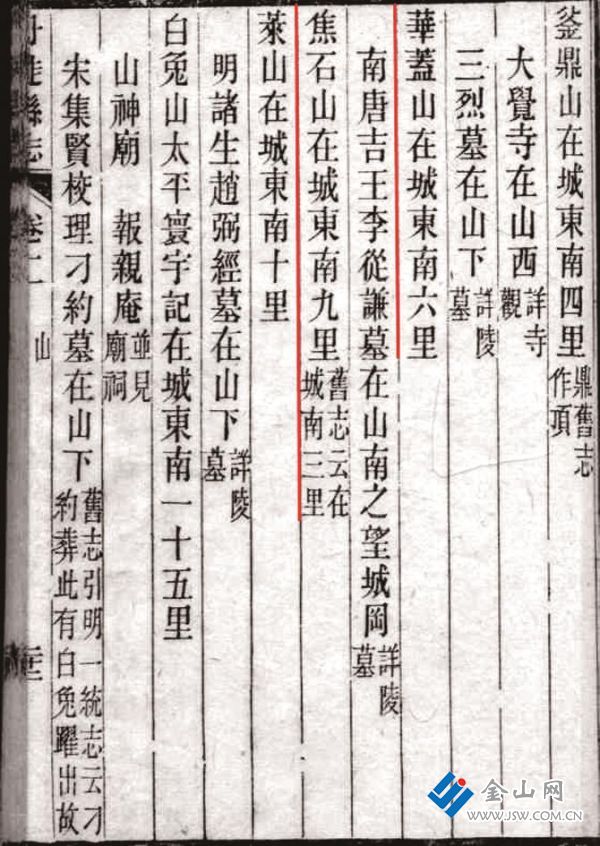 釡鼎山在城東南四里鼎舊志作項
大覺寺在山西詳寺觀
三烈墓在山下詳陵墓
華蓋山在城東南六里
南唐吉王李從謙墓在山南之望城岡詳陵墓
焦石山在城東南九里舊志云在城南三里
萊山在城東南十里
明諸生趙弼經墓在山下詳陵墓
白兔山太平寰宇記在城東南一十五里
山神廟 報親庵並見廟祠
宋集賢校理刁約墓在山下舊志引明一統志云刁約葬此有白兔躍出故
丹徒縣志 卷二 山
金山网
WWW.JSW.COM.CN